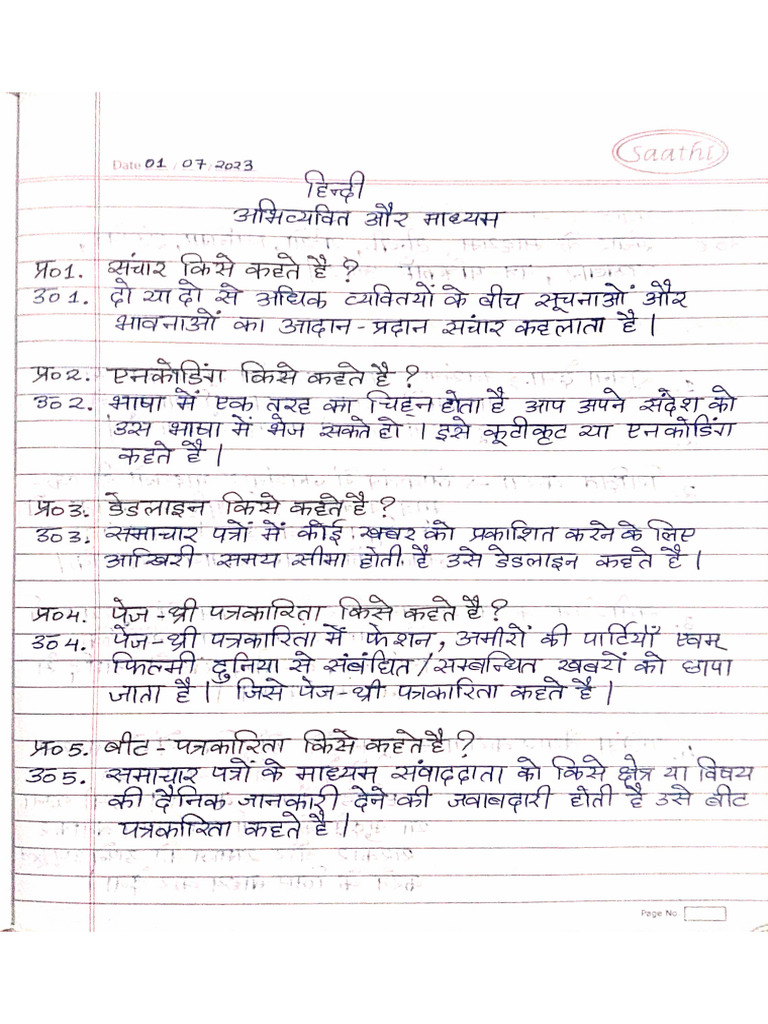 Date 01 / 07 / 2023
Saathi
हिन्दी
अभिव्यक्ति और माध्यम
प्र०1. संचार किसे कहते है ?
उ०1. दो या दो से अधिक व्यक्तियों के बीच सूचनाओं और
भावनाओं का आदान-प्रदान संचार कहलाता है |
प्र०2. एनकोडिंग किसे कहते है ?
उ०2. भाषा में एक तरह का चिह्न होता है आप अपने संदेश को
उस भाषा में भेज सकते हो | इसे कूटीकृट या एनकोडिंग
कहते है |
प्र०3. डेडलाइन किसे कहते है ?
उ०3. समाचार पत्रों में कोई खबर को प्रकाशित करने के लिए
आखिरी समय सीमा होती है उसे डेडलाइन कहते है |
प्र०4. पेज-थ्री पत्रकारिता किसे कहते है ?
उ०4. पेज-थ्री पत्रकारिता में फेशन, अमीरों की पार्टियाँ एवम्
फिल्मी दुनिया से संबंधित/सम्बन्धित खबरों को छापा
जाता है | जिसे पेज-थ्री पत्रकारिता कहते है |
प्र०5. बीट-पत्रकारिता किसे कहते है ?
उ०5. समाचार पत्रों के माध्यम संवाददाता को किसे क्षेत्र या विषय
की दैनिक जानकारी देने की जवाबदारी होती है उसे बीट
पत्रकारिता कहते है |
Page No.